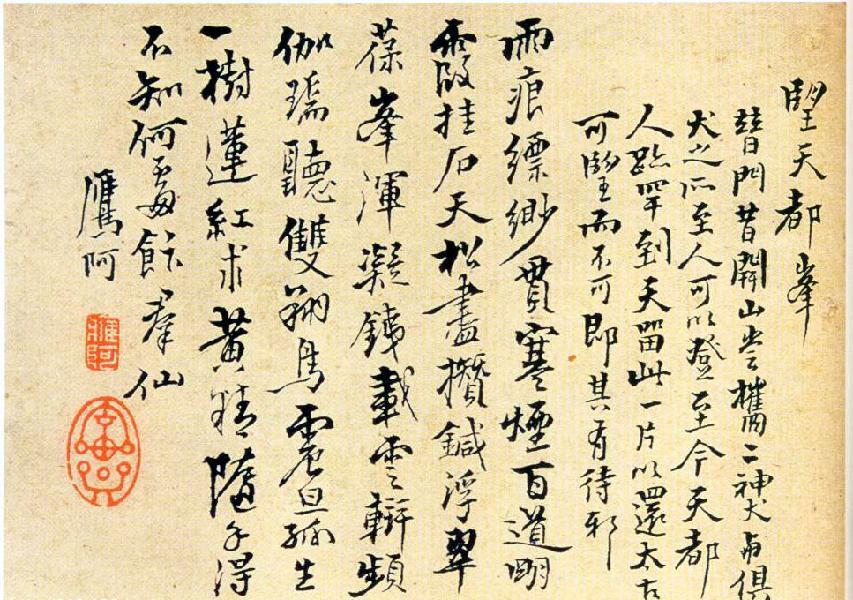 朢天都峯
普門昔開山嘗攜二神犬與俱
犬之所至人可以登至今天都
人跡罕到天留此一片以還太古
可朢而不可即其有待邪
雨痕縹緲貫寒煙百道明
霞挂石天松盡攢鍼浮翠
葆峯渾凝鐵載雲輧頻
伽瑞聽雙翔鳥震旦孤生
一樹蓮紅朮黃精隨手得
不知何處飰羣仙
鷹阿
鷹阿